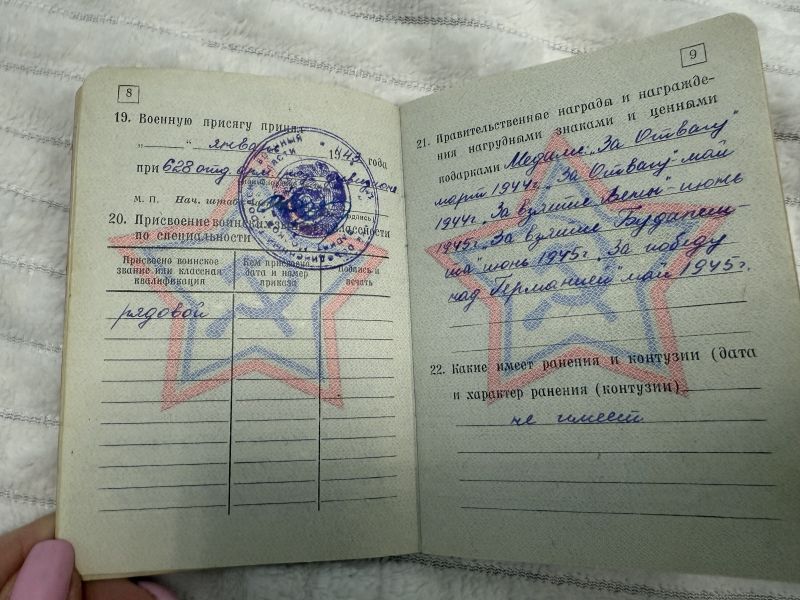 8
19. Военную присягу принял
„ “ январ 1943 года
при 628 отд.
М. П. Нач. штаба
20. Присвоение воинских
по специальности
Присвоено воинское звание или классная квалификация
Кем присвоено, дата и номер приказа
Подпись и печать
рядовой
9
21. Правительственные награды и награжде-
ния нагрудными знаками и ценными
подарками Медали: „За Отвагу“
март 1944г. „За Отвагу“ май
1944г. „За взятие Вены“ - июнь
1945г. „За взятие Будапеш-
та“ июнь 1945г. „За победу
над Германией“ май 1945г.
22. Какие имеет ранения и контузии (дата
и характер ранения (контузии)
не имеет